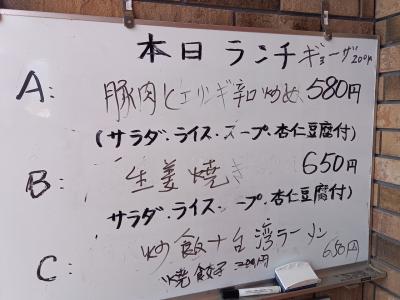 本日 ランチ ギョーザ200円
A: 豚肉とエリンギ辛口炒め 580円
(サラダ・ライス・スープ・杏仁豆腐付)
B: 生姜焼き 650円
サラダ・ライス・スープ・杏仁豆腐付)
C: 炒飯+台湾ラーメン 650円
焼餃子 200円